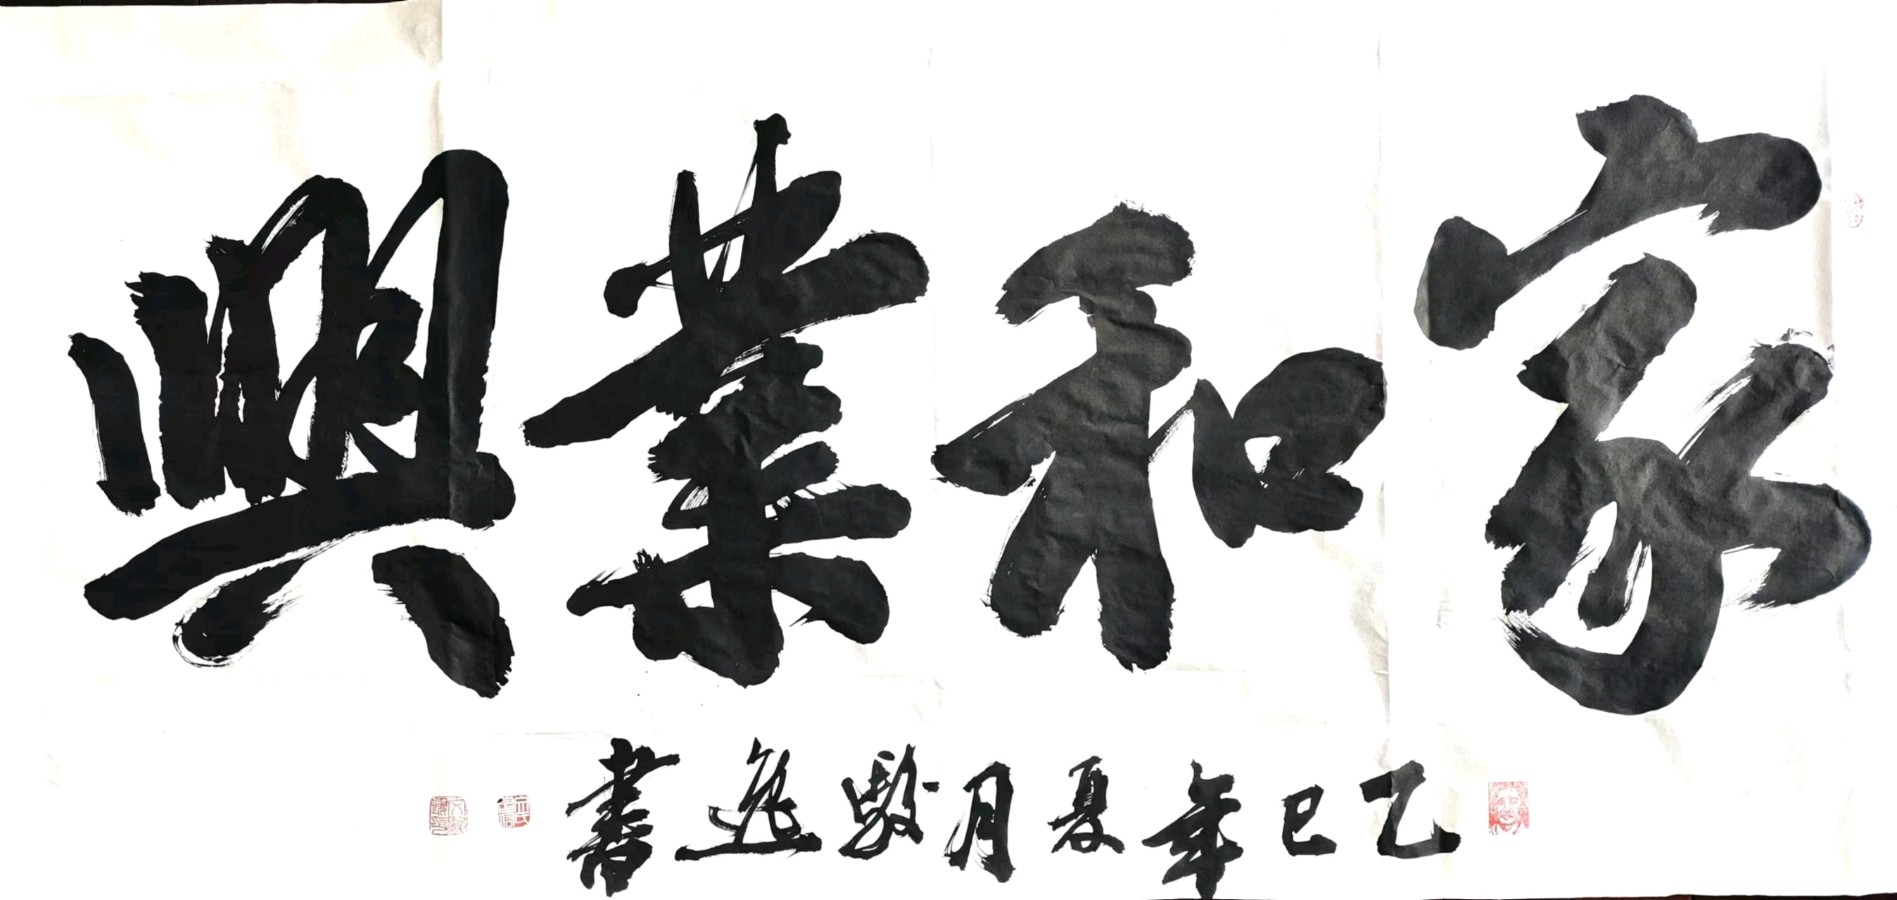 家和業興
乙巳年夏月駿逸書